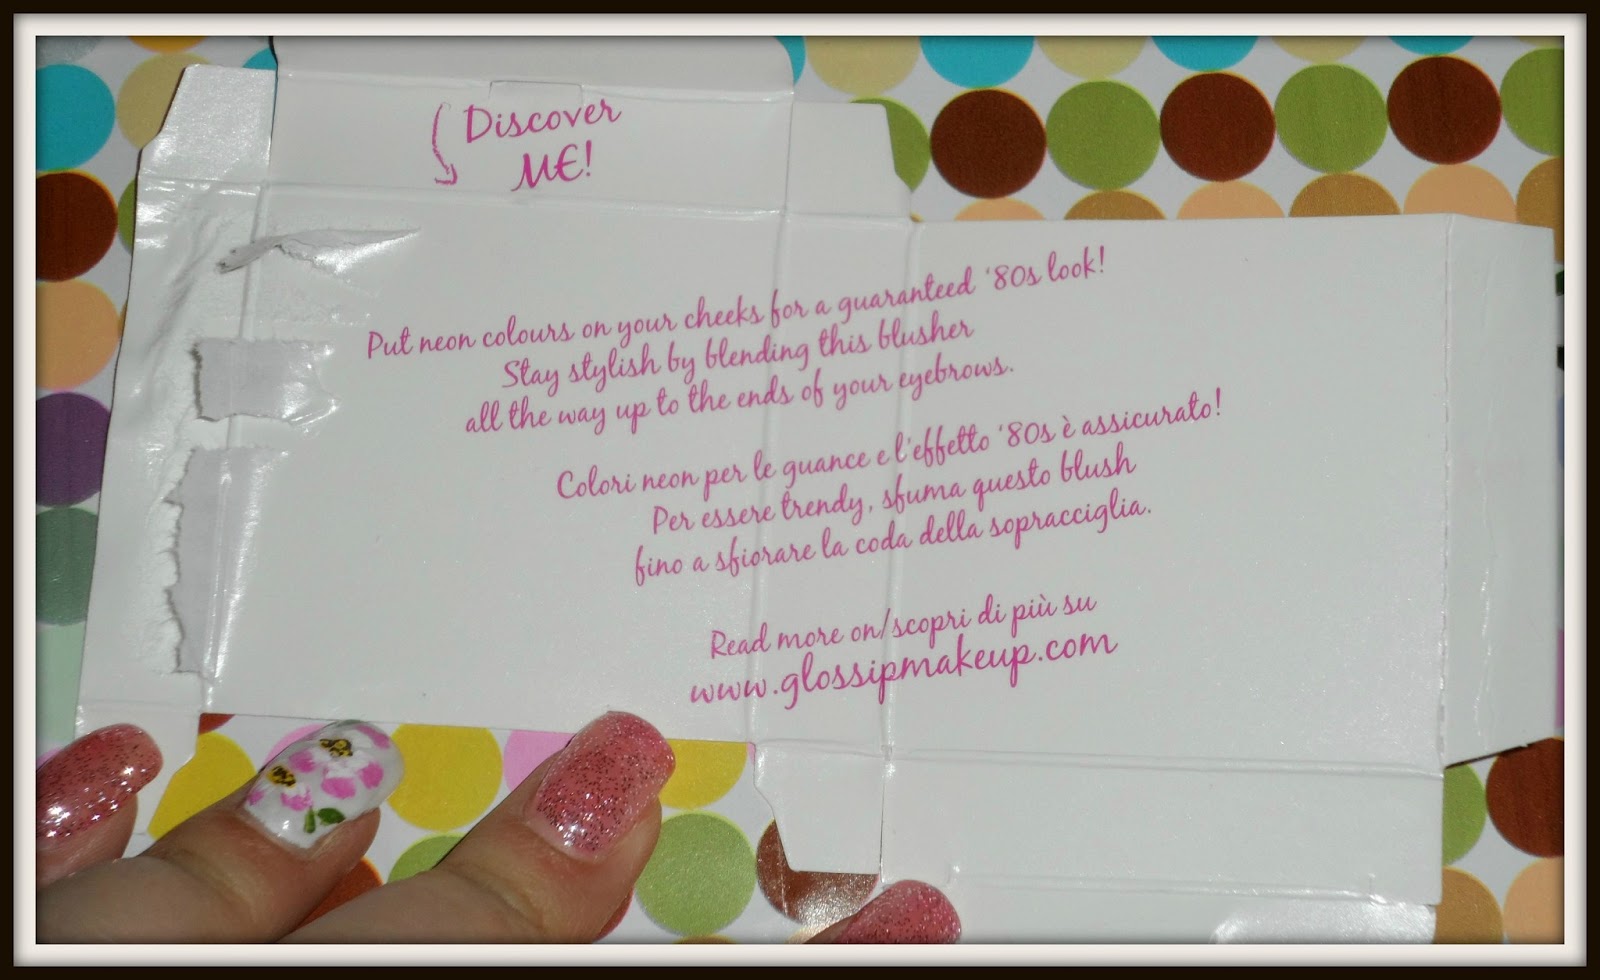 Discover
ME!
Put neon colours on your cheeks for a guaranteed '80s look!
Stay stylish by blending this blusher
all the way up to the ends of your eyebrows.
Colori neon per le guance e l'effetto '80s è assicurato!
Per essere trendy, sfuma questo blush
fino a sfiorare la coda della sopracciglia.
Read more on/scopri di più su
www.glossipmakeup.com